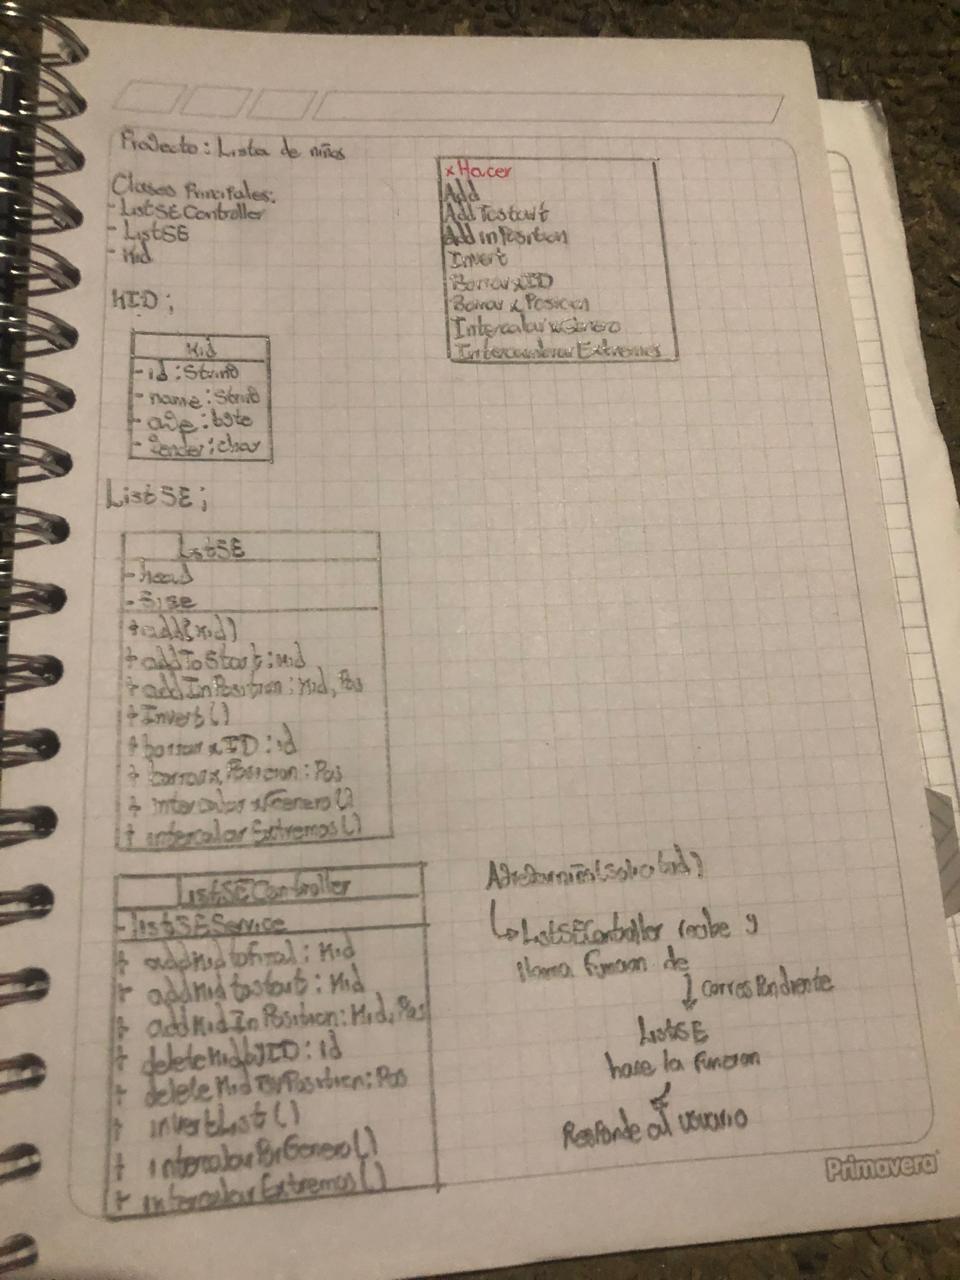 Proyecto: Lista de niños
Clases Principales:
- ListSEController
- ListSE
- Kid
x Hacer
Add
AddTostart
AddinPosition
Invert
BorrarxID
BorrarxPosicion
IntercalarxGenero
IntercambiarExtremos
KID;
Kid
- id: String
- name: String
- age: byte
- gender: char
ListSE;
ListSE
- head
- Size
+ add(Kid)
+ addToStart: Kid
+ addInPosition: Kid, Pos
+ Invert()
+ borrarxID: id
+ borrarxPosicion: Pos
+ intercalarxGenero()
+ intercalarExtremos()
ListSEController
- listSEService
+ addKidtofinal: Kid
+ addKidtostart: Kid
+ addKidInPosition: Kid, Pos
+ deleteKidbyID: id
+ deleteKidByPosition: Pos
+ invertList()
+ intercalarPorGenero()
+ intercalarExtremos()
Agregarniño(Solicitud)
ListSEController recibe y
llama funcion de
correspondiente
ListSE
hase la funcion
Responde al usuario
Primavera